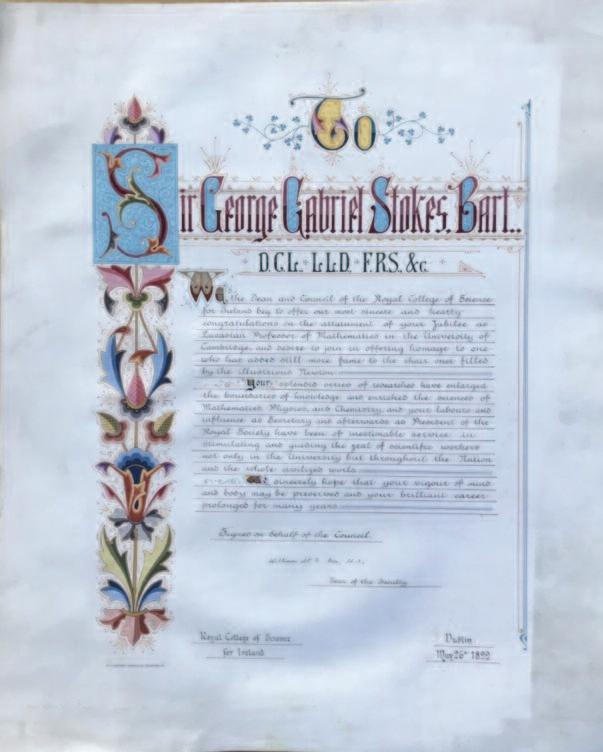 To
Sir George Gabriel Stokes, Bart.,
D.C.L. L.L.D. F.R.S. &c.
We the Dean and Council of the Royal College of Science
for Ireland beg to offer our most sincere and hearty
congratulations on the attainment of your Jubilee as
Lucasian Professor of Mathematics in the University of
Cambridge, and desire to join in offering homage to one
who has added still more fame to the chair once filled
by the illustrious Newton.
Your splendid series of researches have enlarged
the boundaries of knowledge and enriched the sciences of
Mathematics, Physics, and Chemistry, and your labours and
influence as Secretary and afterwards as President of the
Royal Society have been of inestimable service in
stimulating and guiding the zeal of scientific workers
not only in the University but throughout the Nation
and the whole civilized world.
We sincerely hope that your vigour of mind
and body may be preserved and your brilliant career
prolonged for many years.
Signed on behalf of the Council.
William
Dean of the Faculty
Royal College of Science
for Ireland
Dublin
May 26th 1899